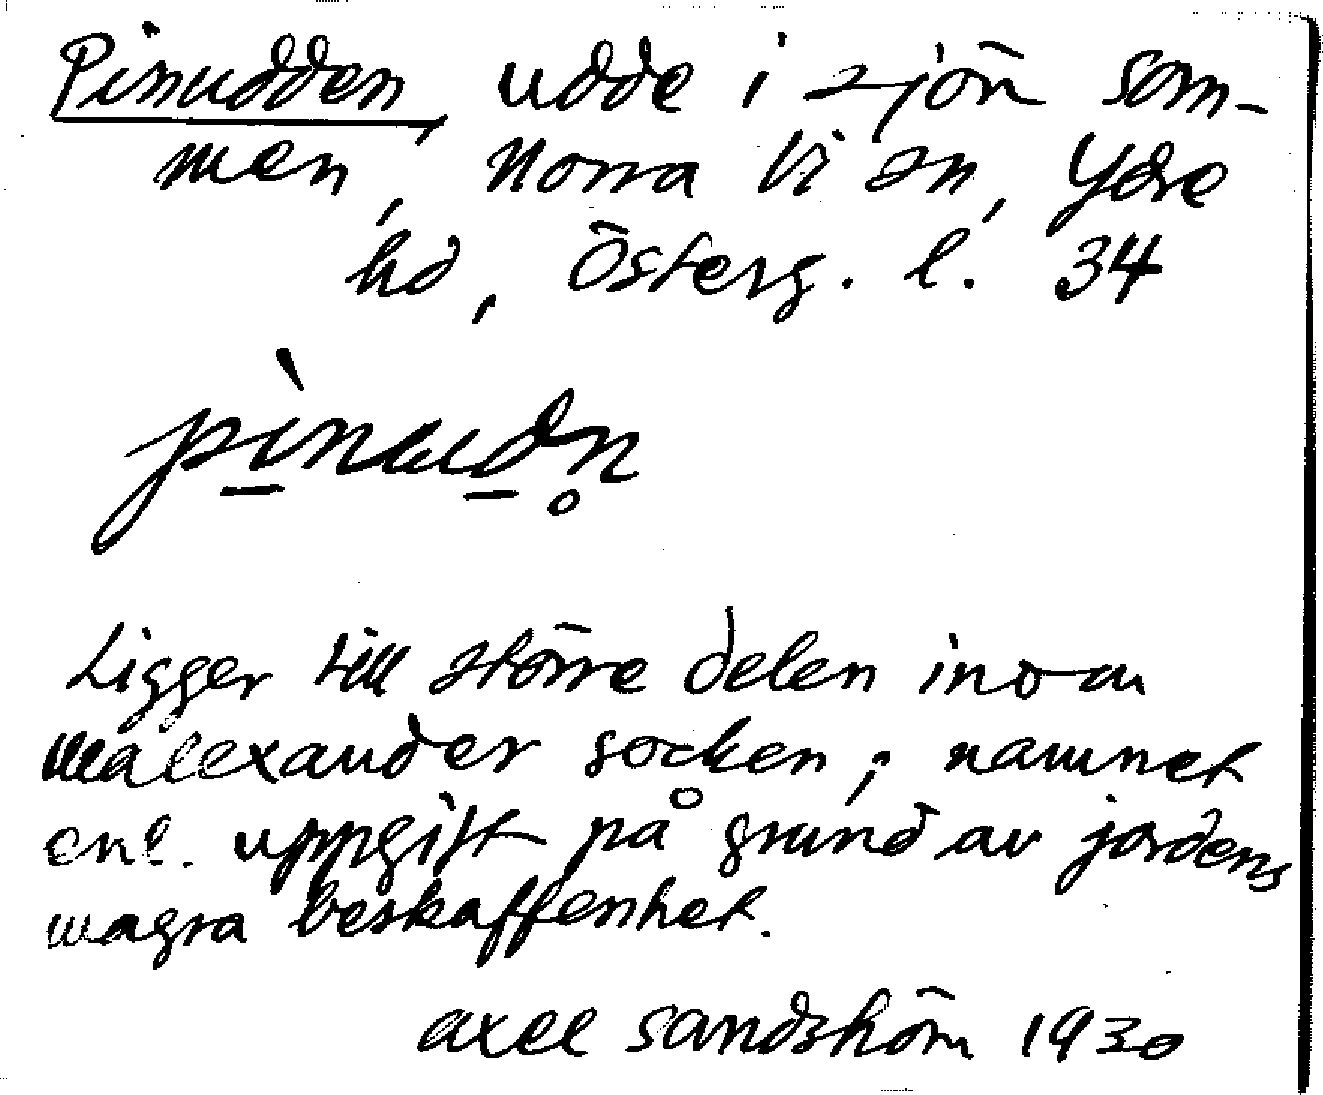 Pinudden, udde i sjön Som-
men, Norra Vi sn, Ydre
hd, Österg. l. 34
pìnudn̥
Ligger till större delen inom
Malexander socken; namnet
enl. uppgift på grund av jordens
magra beskaffenhet.
Axel Sandström 1930